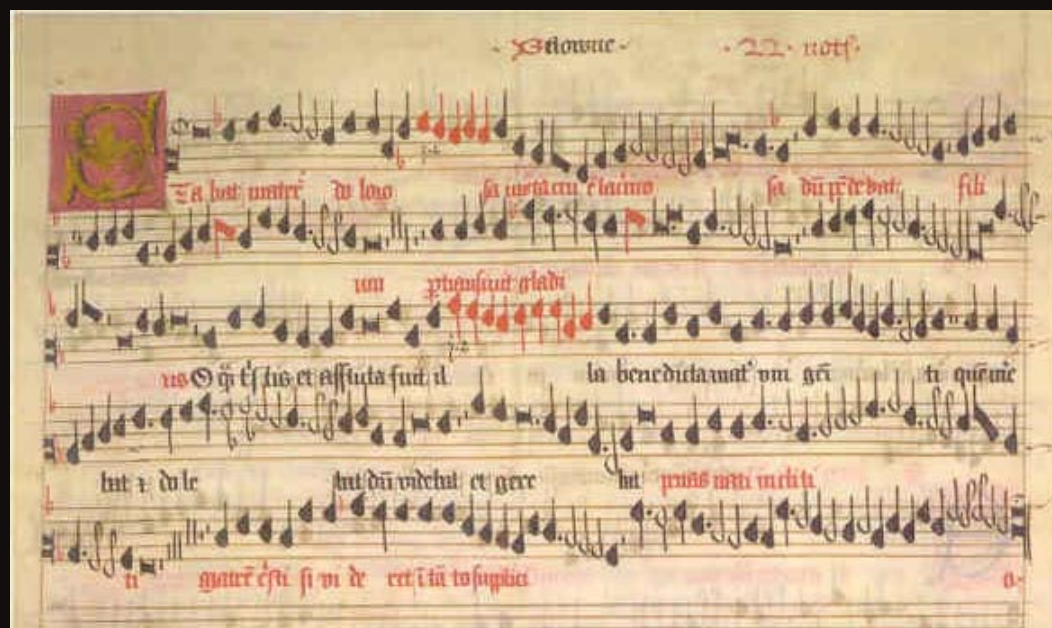 Browne · 22 · not
Sta bat mater do loro sa iuxta cru c̄ lacrimo sa dū pēdebat fili
um ptransiuit gladi
us O qͥ tͥstis et afflicta fuit il la benedicta mat vni geni ti que me
bat ⁊ dole bat dū videbat et gere bat penas nati incliti
ti matrē xͥsti si vi de ret ī tā to supplici o